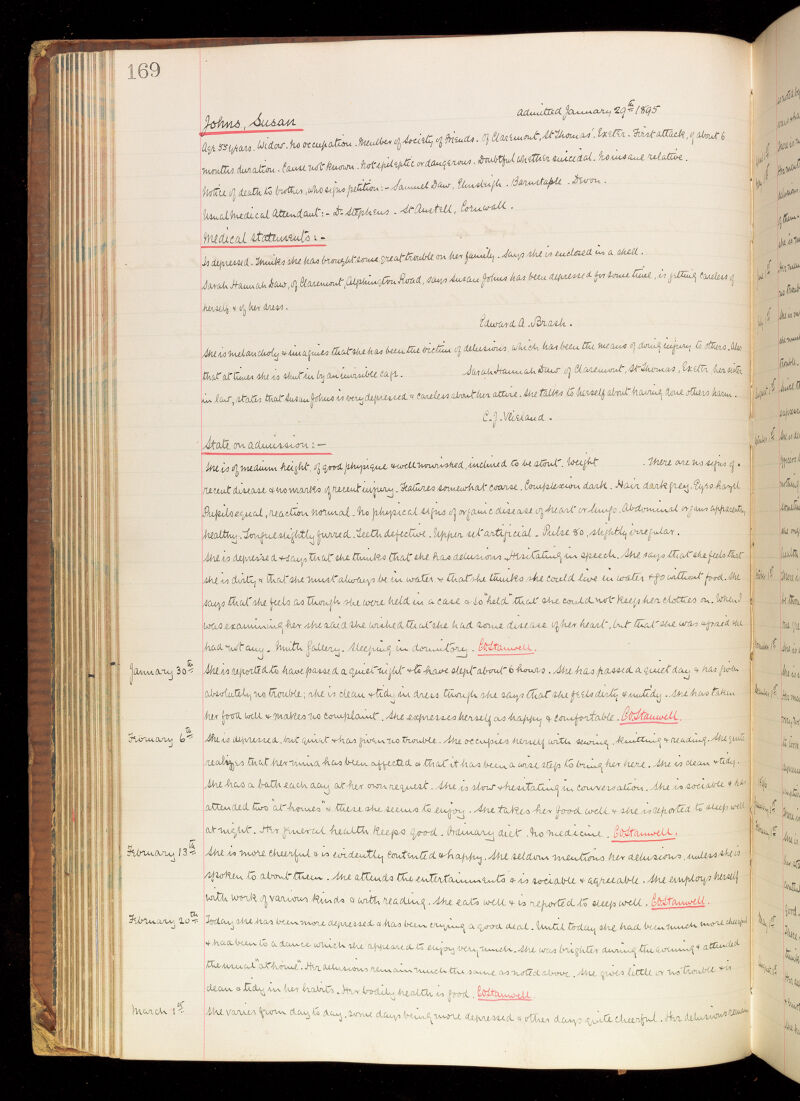 169
admitted January 29th 1895
Johns, Susan
Age 55 years. Widow. No occupation. Member of Society of Friends. Of Claremont, St Thomas', Exeter. First attack, of about 6
months duration. Cause not known. Not epileptic or dangerous. Doubtful whether suicidal. No insane relative.
Notice of death to brother, who signs petition:- Samuel Daw, Barnstaple. Devon.
Usual Medical Attendant:- Dr Stephens. St Austell, Cornwall.
Medical Statements:-
Is depressed. Thinks she has brought some great trouble on her family. Says she is enclosed in a shed.
Sarah Hannah Daw, of Claremont, Alphington Road, says Susan Johns has been depressed for some time, is getting careless of
herself & of her dress.
Edward A. Brash.
She is melancholy & imagines that she has been the victim of delusions, which has been the means of doing injury to others. Also
that at times she is shut in by an invisible cage. Sarah Hannah Daw of Claremont, St Thomas, Exeter her sister
in law, states that Susan Johns is very depressed & careless about her attire. She talks to herself about having done others harm.
C.J. Vlieland.
State on admission:-
She is of medium height, of good physique & well nourished, inclined to be stout. Weight . There are no signs of
recent disease & no marks of recent injury. Features somewhat coarse. Complexion dark. Hair dark grey. Eyes hazel
Pupils equal, reaction normal. No physical signs of organic disease of heart or lungs. Abdominal organs apparently
healthy. Tongue slightly furred. Teeth defective. Upper set artificial. Pulse 80, slightly irregular.
She is depressed & says that she thinks that she has delusions. Hesitating in speech. She says that she feels that
she is dirty & that she must always be in water & that she thinks she could live in water & go without food. She
says that she feels as though she were held in a case & so "held" that she could not keep her clothes on. When I
was examining her she said she wished that she had some disease of her heart, but that she was afraid she
had not any. Ninth Gallery. Sleeping in dormitory. COStanwell.
January 30th
She is reported to have passed a quiet night & to have slept about 6 hours. She has passed a quiet day & has given
absolutely no trouble; she is clean & tidy in dress though she says that she feels dirty & untidy. She has taken
her food well & makes no complaint. She expresses herself as happy & comfortable. COStanwell.
February 6th
She is depressed, but quiet & has given no trouble. She occupies herself with sewing, knitting & reading. She quite
realizes that her mind has been affected & that it has been a wise step to bring her here. She is clean & tidy.
She has a bath each day at her own request. She is slow & hesitating in conversation. She is sociable & has
attended two "at homes" & these she seems to enjoy. She takes her food well & she is reported to sleep well
at night. Her general health keeps good. Ordinary diet. No medicine. COStanwell.
February 13th
She is more cheerful & is evidently contented & happy. She seldom mentions her delusions, unless she is
spoken to about them. She attends the entertainments & is sociable & agreeable. She employs herself
with work of various kinds & with reading. She eats well & is reported to sleep well. COStanwell.
February 20th
Today she has been more depressed & has been crying a good deal. Until today she had been much more cheerful
& had been to a dance which she appeared to enjoy very much. She was brighter during the evening & attended
the usual "at home". Her delusions remain much the same as noted above. She gives little or no trouble & is
clean & tidy in her habits. Her bodily health is good. COStanwell
March 1st
She varies from day to day, some days being more depressed & other days quite cheerful. Her delusions remain